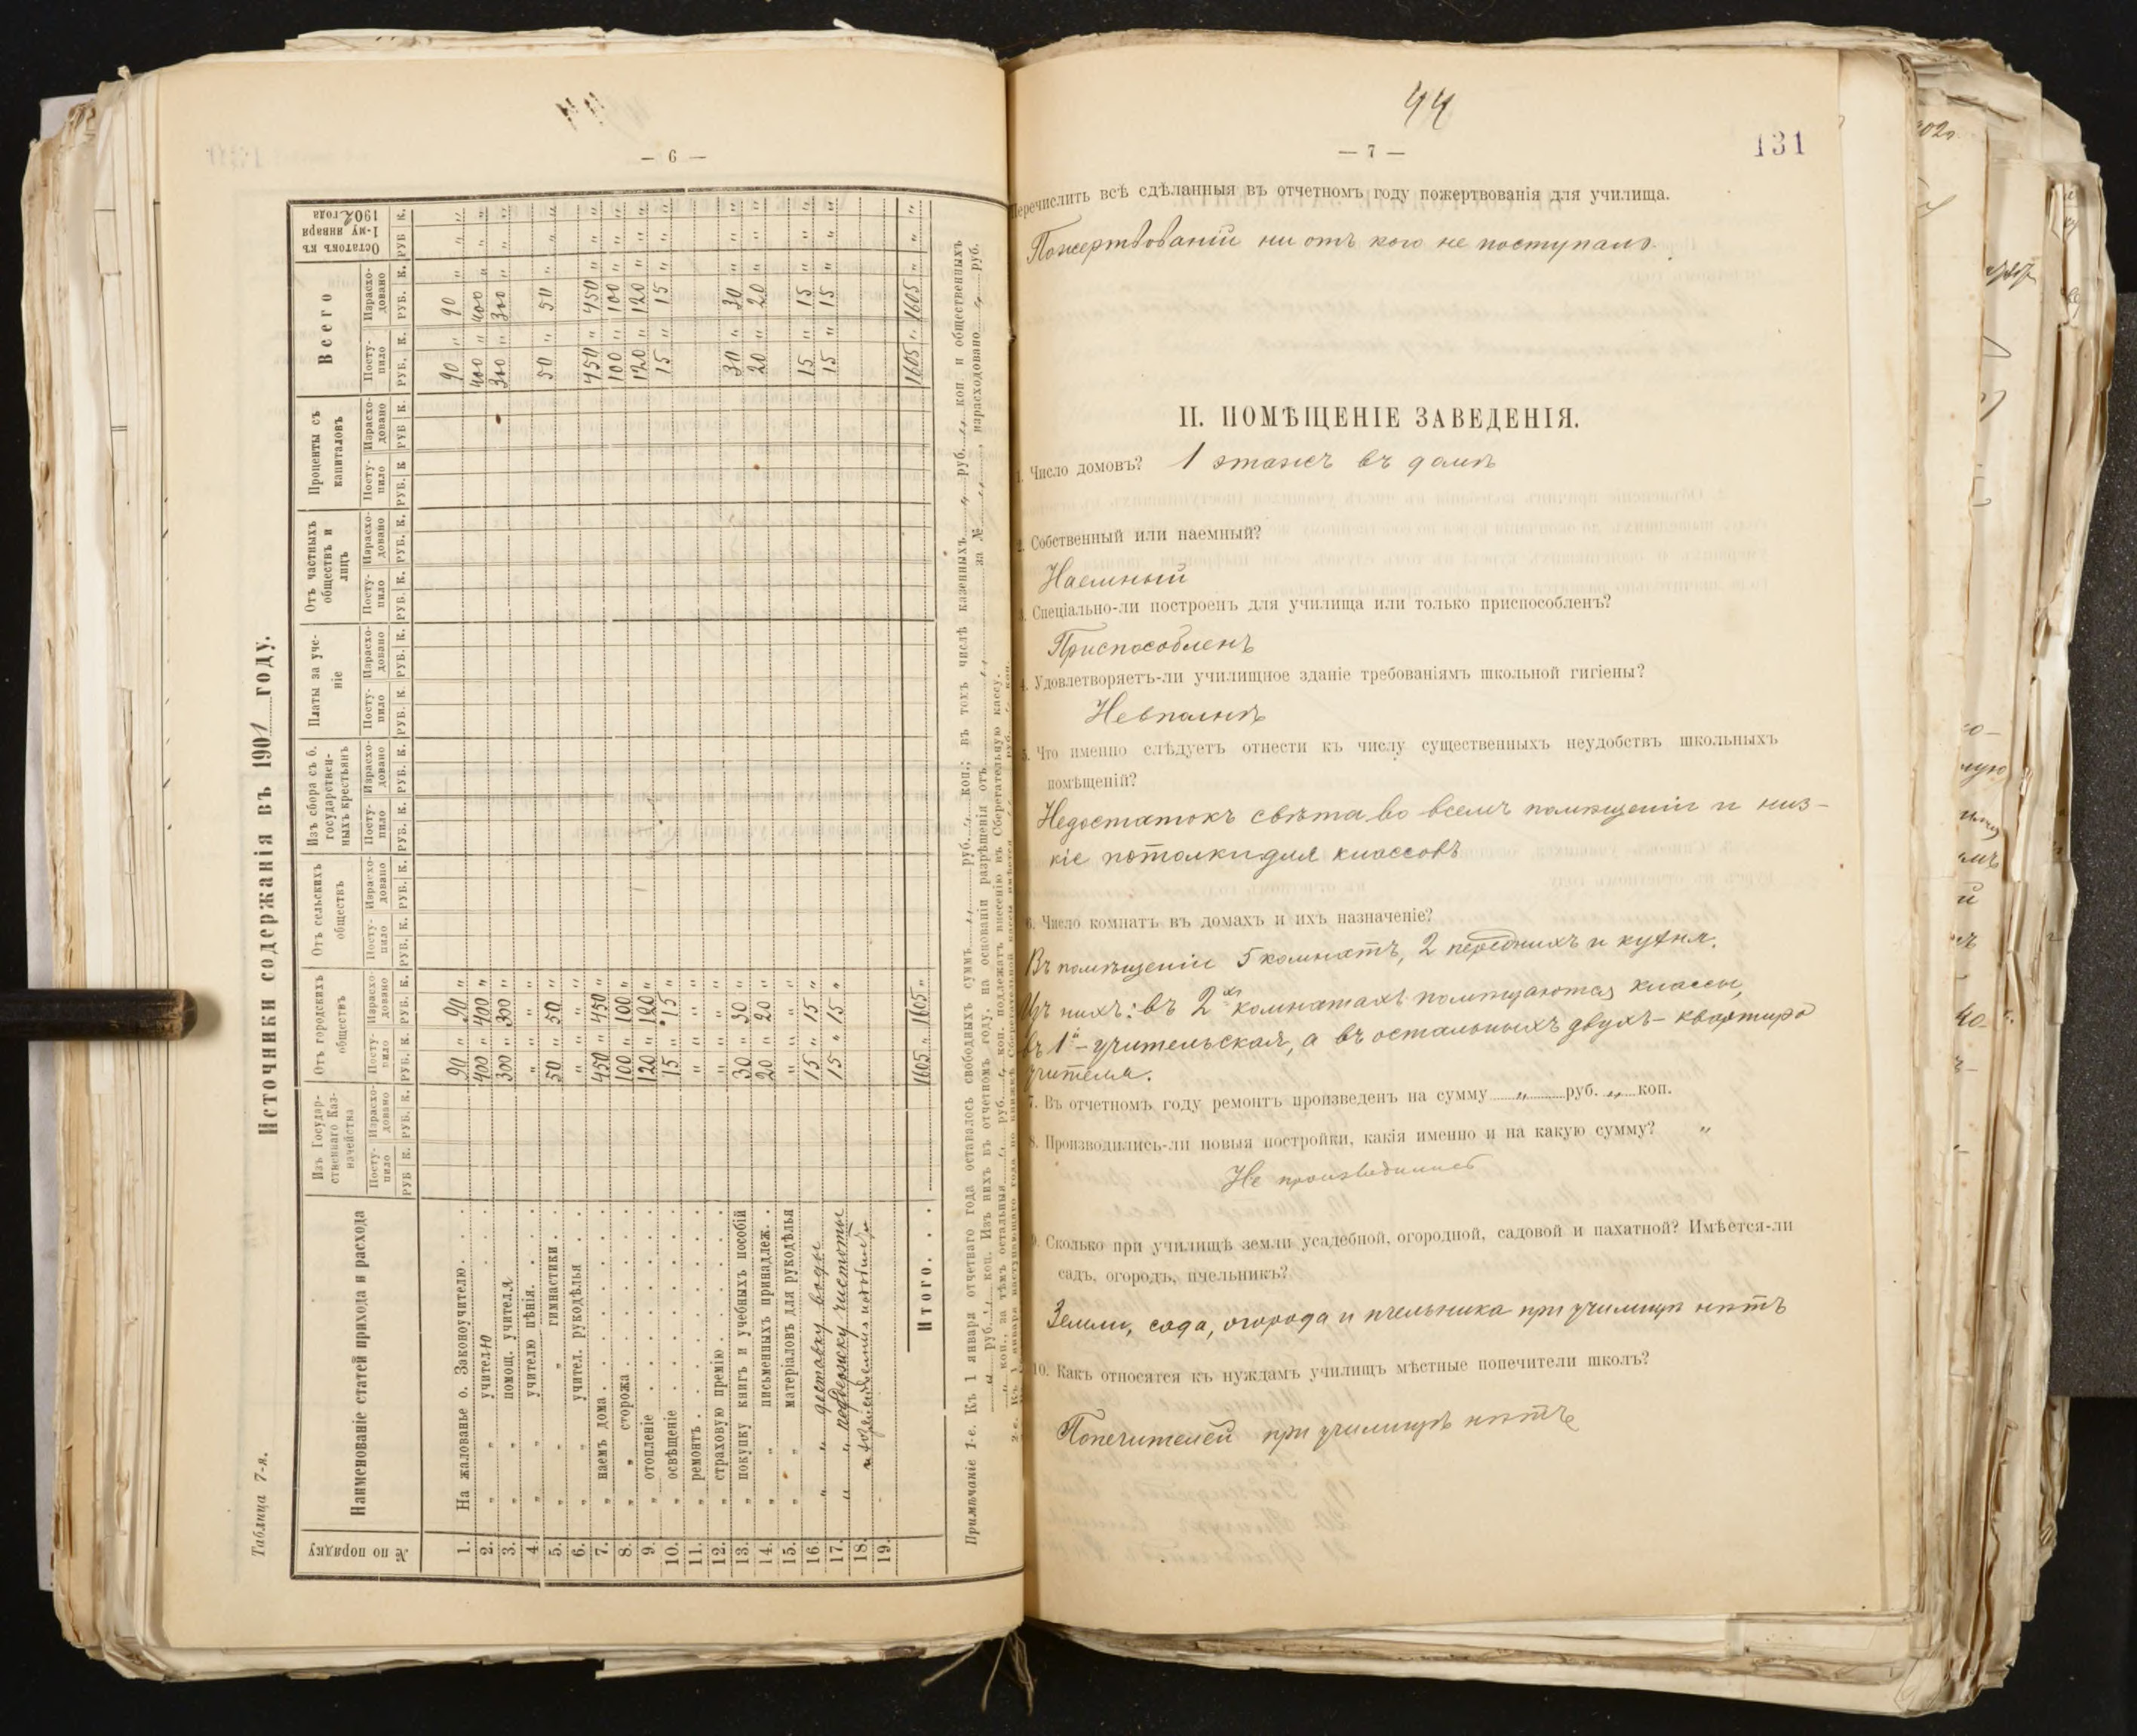 — 6 —
Таблица 7-я.
Источники содержанія въ 1901 году.
№ по порядку
Наименованіе статей прихода и расхода
Изъ Государственнаго Казначейства
Отъ городскихъ обществъ
Отъ сельскихъ обществъ
Изъ сбора съ б. государственныхъ крестьянъ
Платы за ученіе
Отъ частныхъ обществъ и лицъ
Проценты съ капиталовъ
Всего
Остатокъ къ 1-му января 1902 года
Поступило Израсходовано
РУБ. К. РУБ. К.
1. На жалованье о. Законоучителю . . 90 „ 90 „ 90 „ 90 „ „ „
2. „ „ учителю . . 400 „ 400 „ 400 „ 400 „ „ „
3. „ „ помощ. учителя 300 „ 300 „ 300 „ 300 „ „ „
4. „ „ учителю пѣнія. . . „ „
5. „ „ гимнастики . . 50 „ 50 „ 50 „ 50 „ „ „
6. „ „ учител. рукодѣлья . „ „
7. „ наемъ дома . . . 450 „ 450 „ 450 „ 450 „ „ „
8. „ „ сторожа . . . 100 „ 100 „ 100 „ 100 „ „ „
9. „ отопленіе . . . 120 „ 120 „ 120 „ 120 „ „ „
10. „ освѣщеніе . . . 15 „ 15 „ 15 „ 15 „ „ „
11. „ ремонтъ . . . „ „
12. „ страховую премію . . „ „
13. „ покупку книгъ и учебныхъ пособій 30 „ 30 „ 30 „ 30 „ „ „
14. „ „ письменныхъ принадлеж. . 20 „ 20 „ 20 „ 20 „ „ „
15. „ „ матеріаловъ для рукодѣлья „ „
16. „ „ доставку воды 15 „ 15 „ 15 „ 15 „ „ „
17. „ „ поддержку чистоты 15 „ 15 „ 15 „ 15 „ „ „
18.
19.
Итого. . . 1605 „ 1605 „ 1605 „ 1605 „ „ „
Примѣчаніе 1-е. Къ 1 января отчетнаго года оставалось свободныхъ суммъ „ руб. „ коп.; въ томъ числѣ казенныхъ „ руб. „ коп. и общественныхъ
„ руб. „ коп. Изъ нихъ въ отчетномъ году, на основаніи разрѣшенія отъ „ за № „, израсходовано „ руб.
„ коп., за тѣмъ остальныя „ руб. „ коп. подлежатъ внесенію въ Сберегательную кассу.
44
— 7 —
131
Перечислить всѣ сдѣланныя въ отчетномъ году пожертвованія для училища.
Пожертвованій ни отъ кого не поступало.
II. ПОМѢЩЕНІЕ ЗАВЕДЕНІЯ.
1. Число домовъ? 1 этажъ въ домѣ
2. Собственный или наемный?
Наемный
3. Спеціально-ли построенъ для училища или только приспособленъ?
Приспособленъ
4. Удовлетворяетъ-ли училищное зданіе требованіямъ школьной гигіены?
Невполнѣ
5. Что именно слѣдуетъ отнести къ числу существенныхъ неудобствъ школьныхъ
помѣщеній?
Недостатокъ свѣта во всемъ помѣщеніи и низ-
кіе потолки для классовъ
6. Число комнатъ въ домахъ и ихъ назначеніе?
Въ помѣщеніи 5 комнатъ, 2 переднихъ и кухня.
Изъ нихъ: въ 2хъ комнатахъ помѣщаются классы,
въ 1й – учительская, а въ остальныхъ двухъ – квартира
учителя.
7. Въ отчетномъ году ремонтъ произведенъ на сумму „ руб. „ коп.
8. Производились-ли новыя постройки, какія именно и на какую сумму? „
Не производились
9. Сколько при училищѣ земли усадебной, огородной, садовой и пахатной? Имѣется-ли
садъ, огородъ, пчельникъ?
Земли, сада, огорода и пчельника при училищѣ нѣтъ
10. Какъ относятся къ нуждамъ училищъ мѣстные попечители школъ?
Попечителей при училищѣ нѣтъ